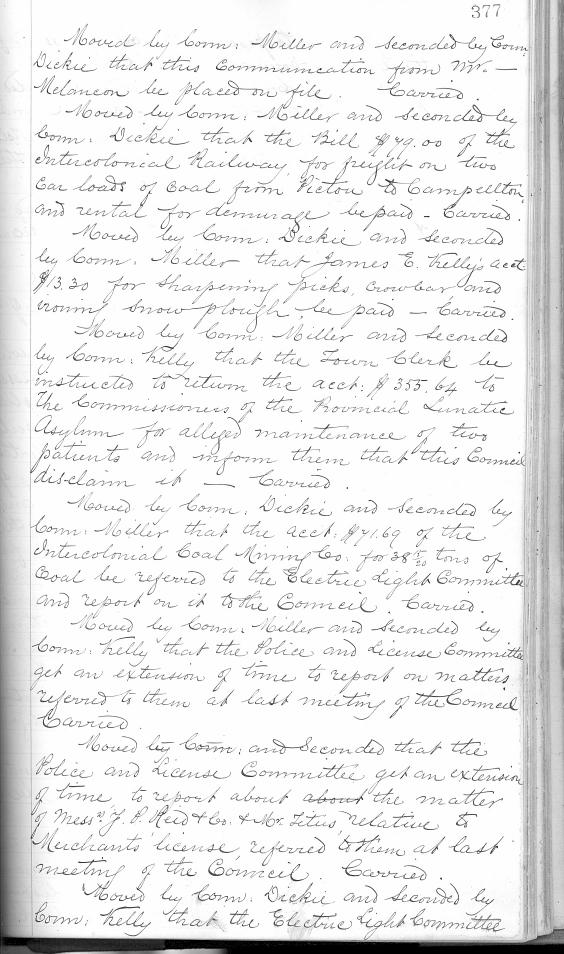 377
Moved by Coun: Miller and seconded by Coun:
Dickie that this Communication from Mr. —
Melancon be placed on file. Carried.
Moved by Coun: Miller and seconded by
Coun: Dickie that the Bill $79.00 of the
Intercolonial Railway, for freight on two
Car loads of Coal from Pictou to Campellton,
and rental for demurage be paid - Carried.
Moved by Coun: Dickie and seconded
by Coun: Miller that James E. Kelly's acct
$13.30 for sharpening picks, crowbar and
ironing snow plough be paid — Carried.
Moved by Coun: Miller and seconded
by Coun: Kelly that the Town Clerk be
instructed to return the acct: $355.64 to
the Commissioners of the Provincial Lunatic
Asylum for alleged maintenance of two
patients and inform them that this Council
disclaim it — Carried.
Moved by Coun: Dickie and seconded by
Coun: Miller that the acct: $71.69 of the
Intercolonial Coal Mining Co: for 38 /20 tons of
Coal be referred to the Electric Light Committee
and report on it to the Council. Carried.
Moved by Coun: Miller and seconded by
Coun: Kelly that the Police and License Committee
get an extension of time to report on matters
referred to them at last meeting of the Council
Carried.
Moved by Coun: and Seconded that the
Police and License Committee get an extension
of time to report about about the matter
of Messrs. J. P. Reid & Co. & Mr. Titus relative to
Merchants' license, referred to them at last
meeting of the Council. Carried.
Moved by Coun: Dickie and seconded by
Coun: Kelly that the Electric Light Committee